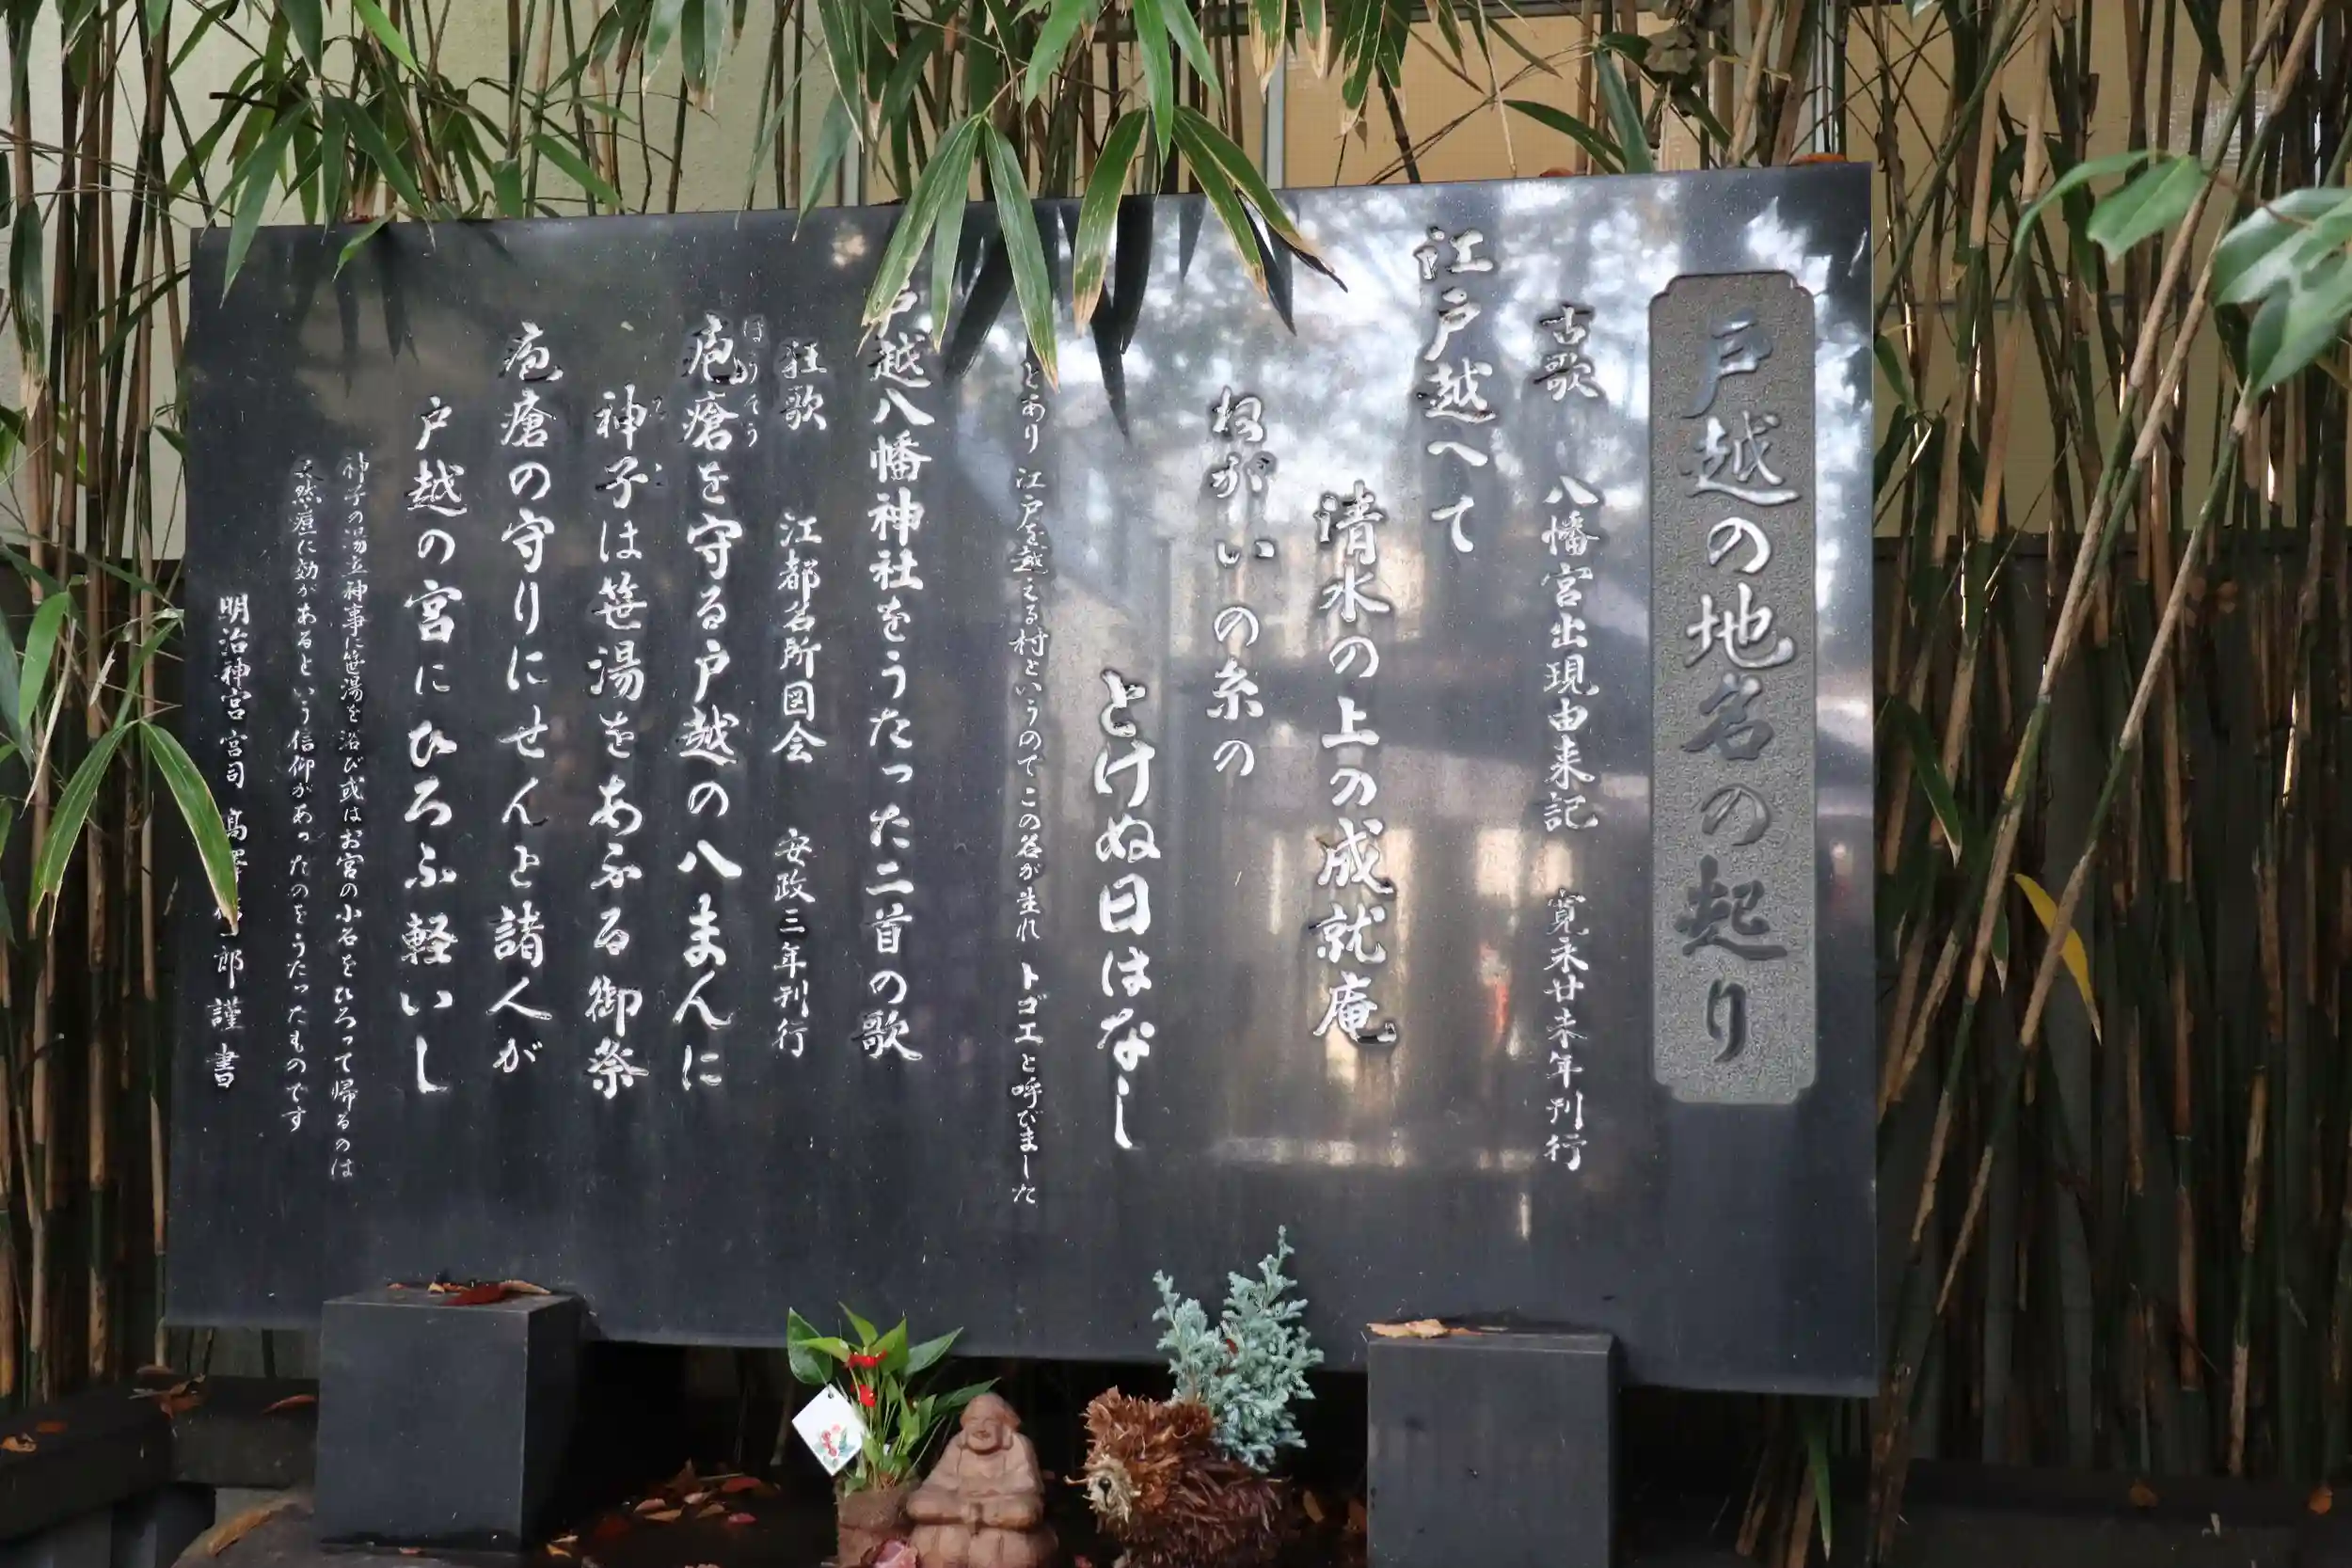 戸越の地名の起り
古歌 八幡宮出現由来記 寛永廿未年刊行
江戸越へて
清水の上の成就庵
ねがいの糸の
とけぬ日はなし
とあり 江戸を越える村というのでこの名が生れ トゴエと呼びました
戸越八幡神社をうたった二首の歌
狂歌 江都名所図会 安政三年刊行
疱瘡を守る戸越の八まんに
ほうそう
神子は笹湯をあふる御祭
みこ
疱瘡の守りにせんと諸人が
戸越の宮にひろふ軽いし
神子の湯立神事に笹湯を浴び或はお宮の小石をひろって帰るのは
天然痘に効があるという信仰があったのをうたったものです
明治神宮宮司 郎謹書